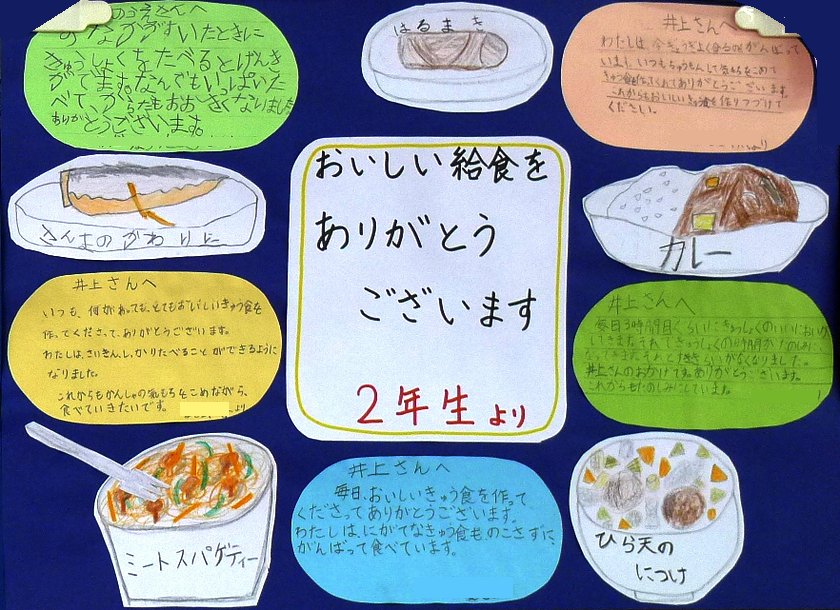 のうえさんへ
おなかがすいたときに
きゅうしょくをたべるとげんき
がでます。なんでもいっぱいた
べて、からだもおおきくなりました
ありがとうございます。
はるまき
井上さんへ
わたしは、今きゅうしょくを
がんばって
います。いつも
気もちをこめて
きゅう食を作ってくれてありがとうございます。
これからもおいしいきゅう食を作りつづけて
ください。
より
さんまのかわりに
おいしい給食を
ありがとう
ございます
2年生より
カレー
井上さんへ
いつも、何があっても、とてもおいしいきゅう食を
作ってくださって、ありがとうございます。
わたしは、さいきん、しっかりたべることができるように
なりました。
これからもかんしゃの気もちをこめながら、
食べていきたいです。
より
井上さんへ
毎日3時間目くらいにきゅうしょくのいいにおいが
してきます。それできゅうしょくの時間がたのしみに
なってきます。それとすききらいがなくなりました。
井上さんのおかげです。ありがとうございます。
これからもたのしみにしています。
ミートスパゲティー
井上さんへ
毎日、おいしいきゅう食を作って
くださってありがとうございます。
わたしは、にがてなきゅう食も、のこさずに、
がんばって食べています。
ひら天の
につけ